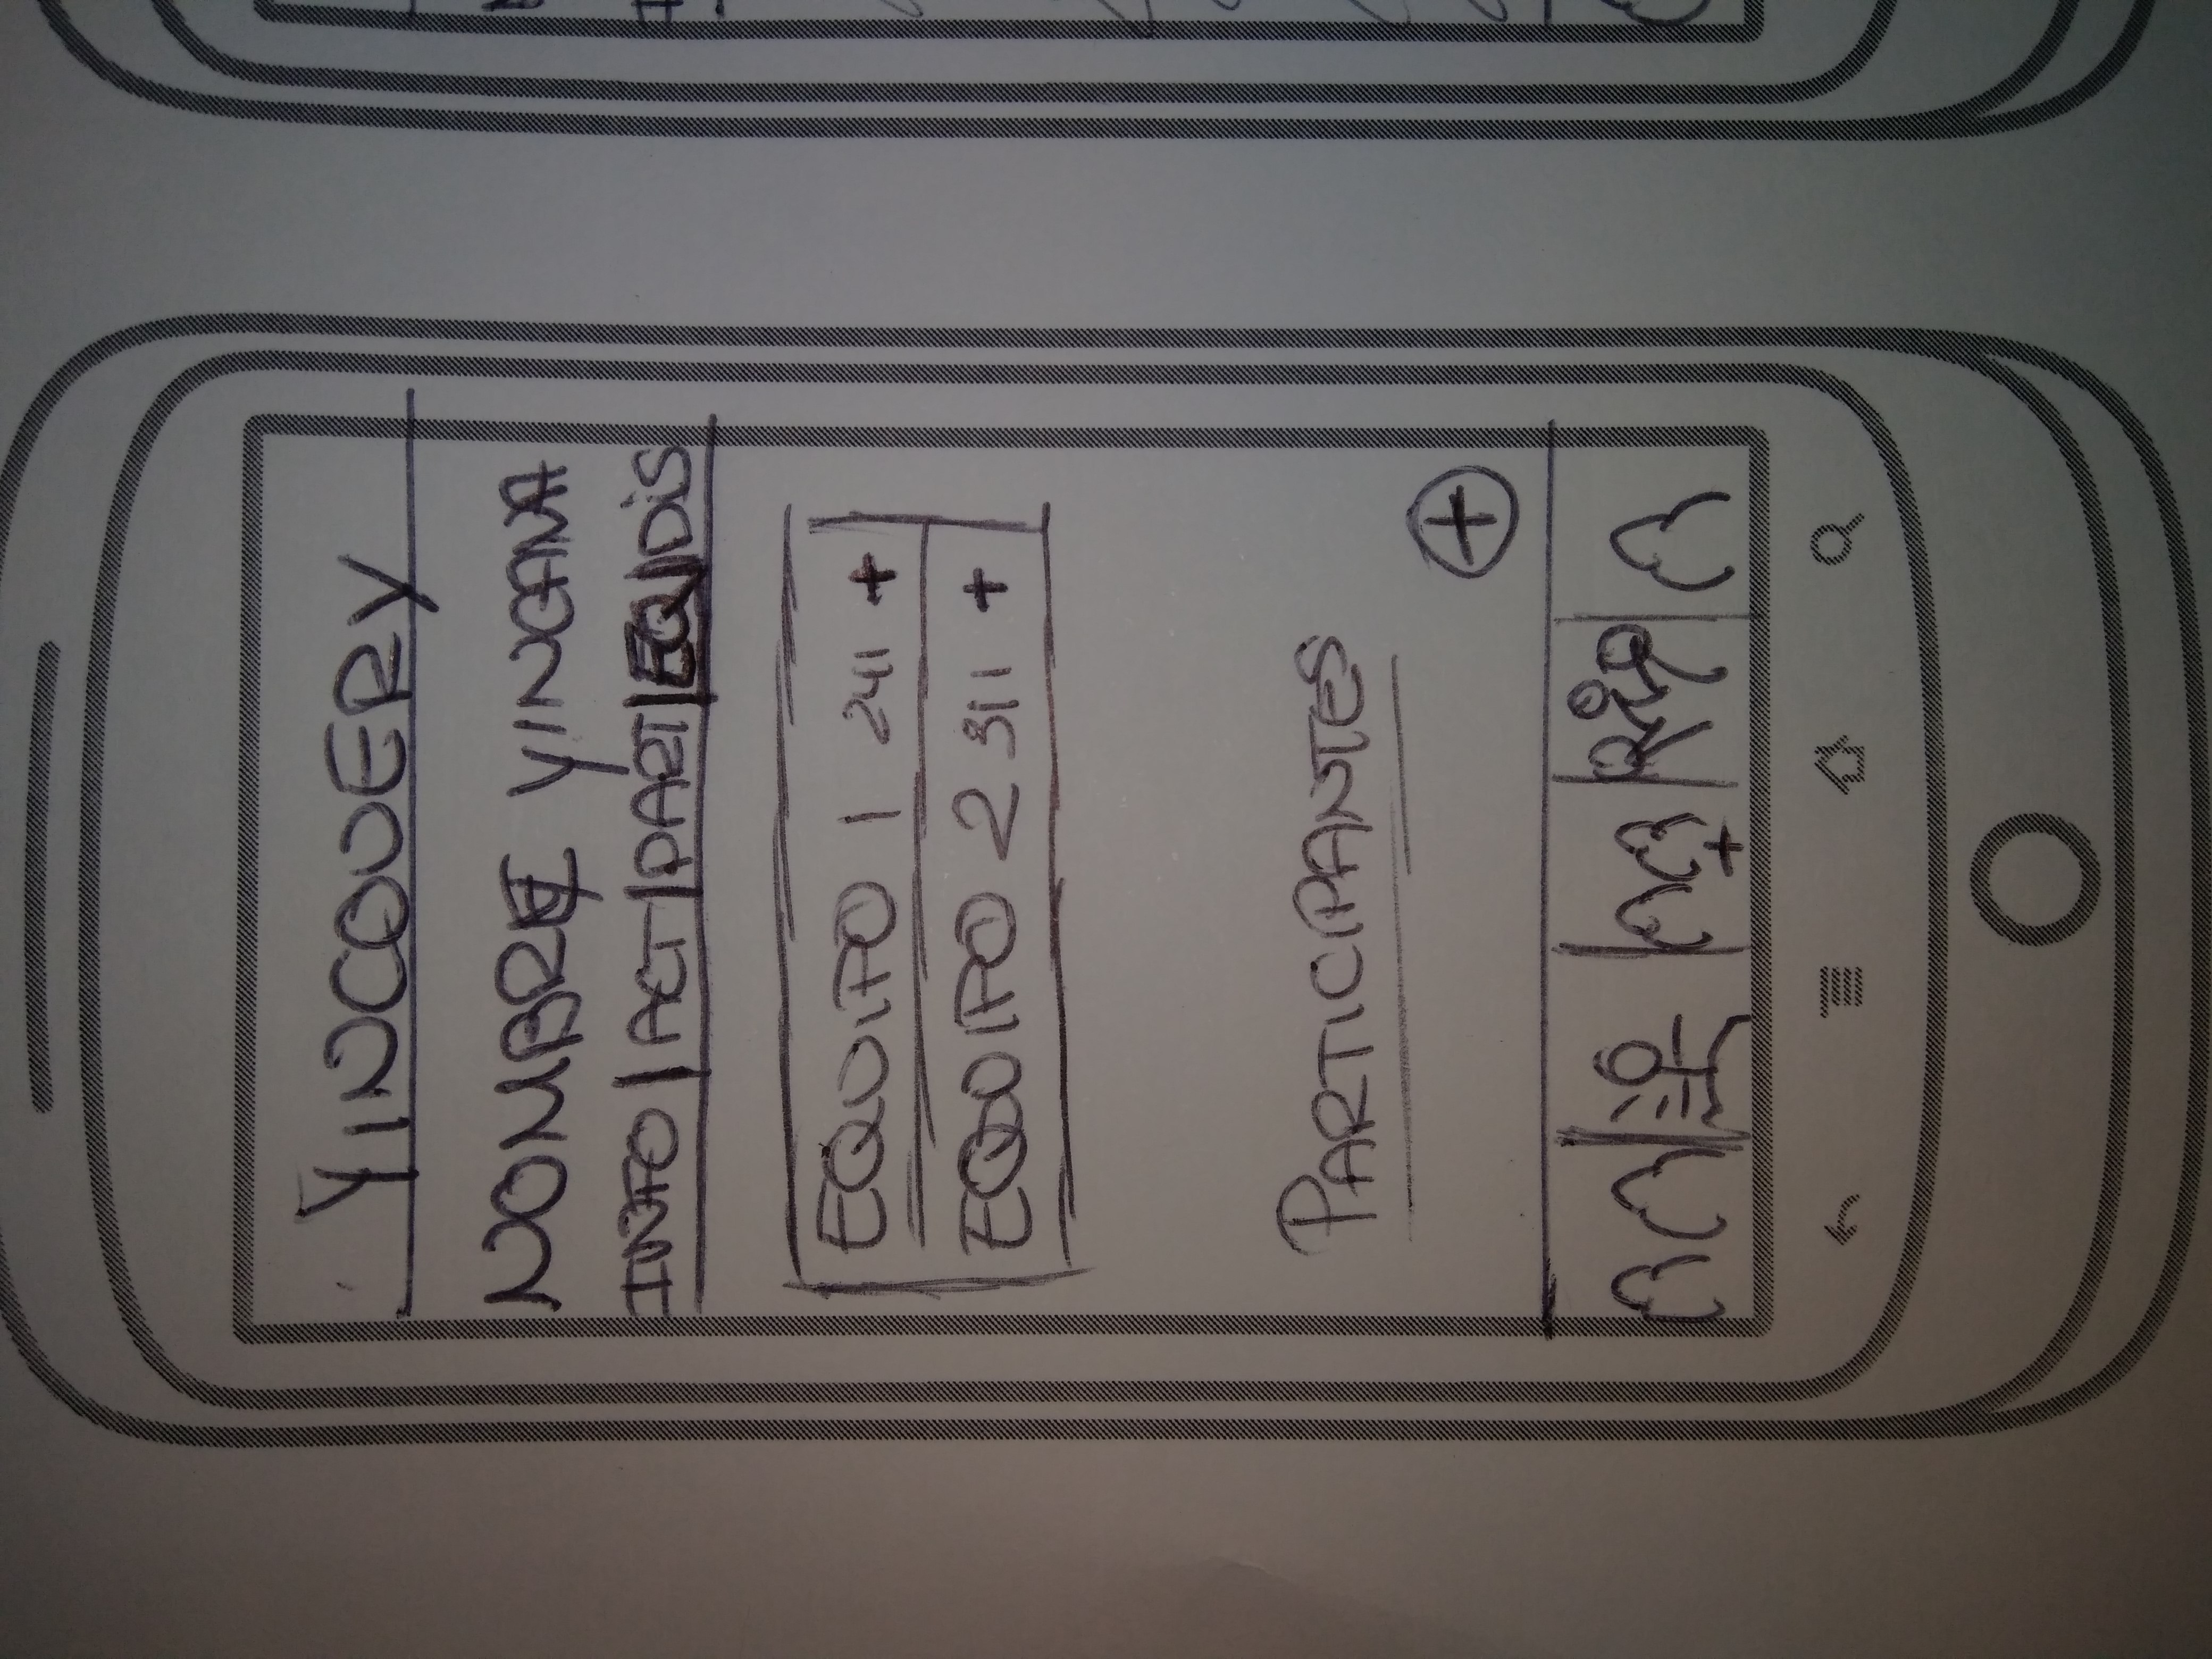 YINCOVERY
NOMBRE YINCANA
INFO | ACT | PART | EQ | DiS
EQUIPO 1 241 +
EQUIPO 2 311 +
PARTICIPANTES
+
+